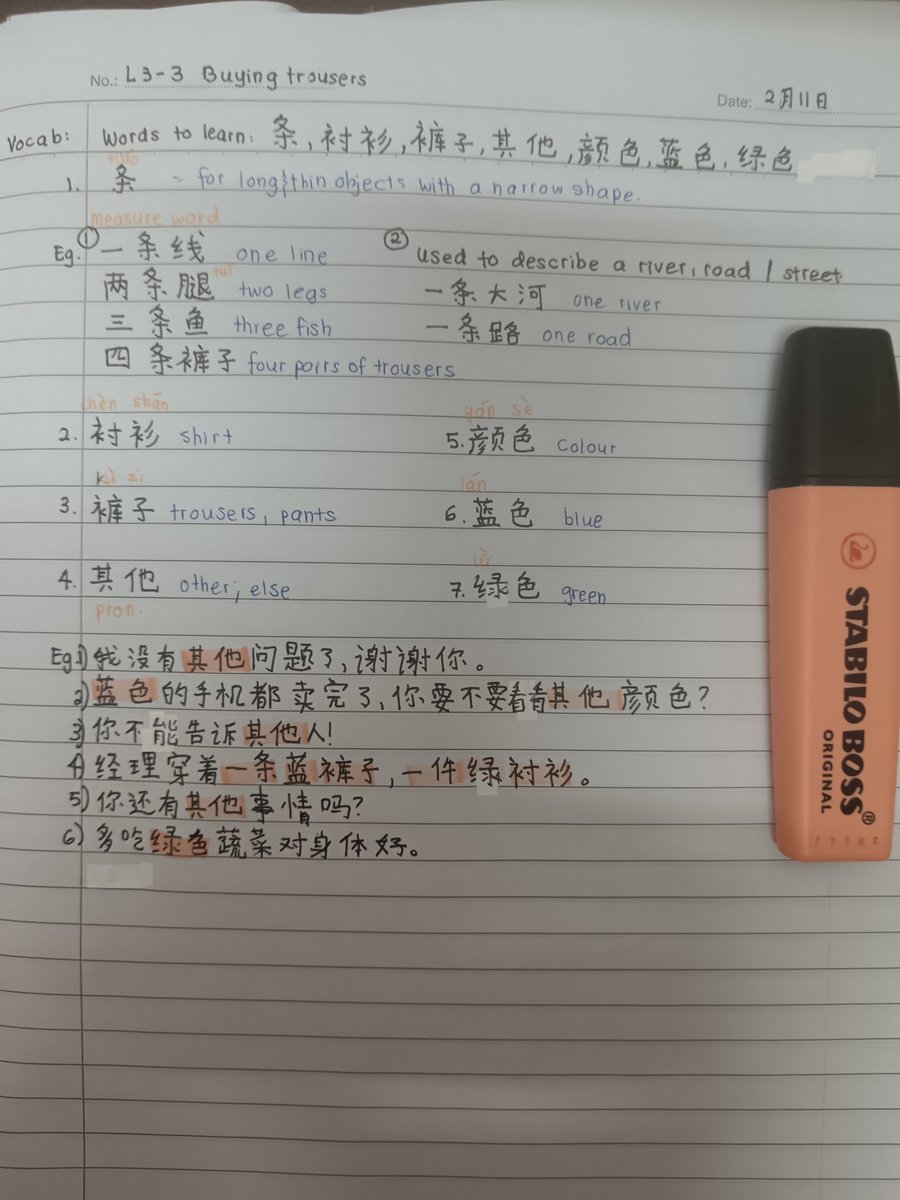 No.: L3-3 Buying trousers
Date: 2月11日
Vocab: Words to learn: 条, 衬衫, 裤子, 其他, 颜色, 蓝色, 绿色
tiáo
1. 条 = for long & thin objects with a narrow shape.
measure word
Eg. ① 一条线 one line
两条腿 tuǐ two legs
三条鱼 three fish
四条裤子 four pairs of trousers
② used to describe a river, road / street
一条大河 one river
一条路 one road
chèn shān
2. 衬衫 shirt
kù zi
3. 裤子 trousers, pants
4. 其他 other; else
pron.
yán sè
5. 颜色 colour
lán
6. 蓝色 blue
lǜ
7. 绿色 green
Eg. 1) 我没有其他问题了, 谢谢你。
2) 蓝色的手机都卖完了, 你要不要看看其他颜色?
3) 你不能告诉其他人!
4) 经理穿着一条蓝裤子, 一件绿衬衫。
5) 你还有其他事情吗?
6) 多吃绿色蔬菜对身体好。
STABILO BOSS®
ORIGINAL